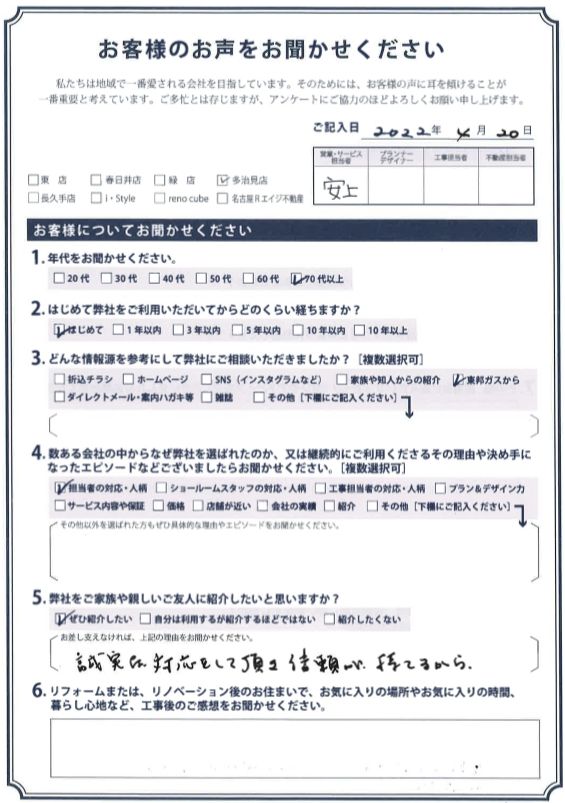 お客様のお声をお聞かせください
私たちは地域で一番愛される会社を目指しています。そのためには、お客様の声に耳を傾けることが
一番重要と考えています。ご多忙とは存じますが、アンケートにご協力のほどよろしくお願い申し上げます。
ご記入日 2022年 4月 20日
営業・サービス担当者 プランナーデザイナー 工事担当者 不動産担当者
安上
□東 店 □春日井店 □緑 店 ☑多治見店
□長久手店 □i・Style □reno cube □名古屋Rエイジ不動産
お客様についてお聞かせください
1. 年代をお聞かせください。
□20代 □30代 □40代 □50代 □60代 ☑70代以上
2. はじめて弊社をご利用いただいてからどのくらい経ちますか？
☑はじめて □1年以内 □3年以内 □5年以内 □10年以内 □10年以上
3. どんな情報源を参考にして弊社にご相談いただきましたか？［複数選択可］
□折込チラシ □ホームページ □SNS（インスタグラムなど） □家族や知人からの紹介 ☑東邦ガスから
□ダイレクトメール・案内ハガキ等 □雑誌 □その他［下欄にご記入ください］
4. 数ある会社の中からなぜ弊社を選ばれたのか、又は継続的にご利用くださるその理由や決め手に
なったエピソードなどございましたらお聞かせください。［複数選択可］
☑担当者の対応・人柄 □ショールームスタッフの対応・人柄 □工事担当者の対応・人柄 □プラン&デザイン力
□サービス内容や保証 □価格 □店舗が近い □会社の実績 □紹介 □その他［下欄にご記入ください］
その他以外を選ばれた方もぜひ具体的な理由やエピソードをお聞かせください。
5. 弊社をご家族や親しいご友人に紹介したいと思いますか？
☑ぜひ紹介したい □自分は利用するが紹介するほどではない □紹介したくない
お差し支えなければ、上記の理由をお聞かせください。
誠実な対応をして頂き信頼が持てるから.
6. リフォームまたは、リノベーション後のお住まいで、お気に入りの場所やお気に入りの時間、
暮らし心地など、工事後のご感想をお聞かせください。